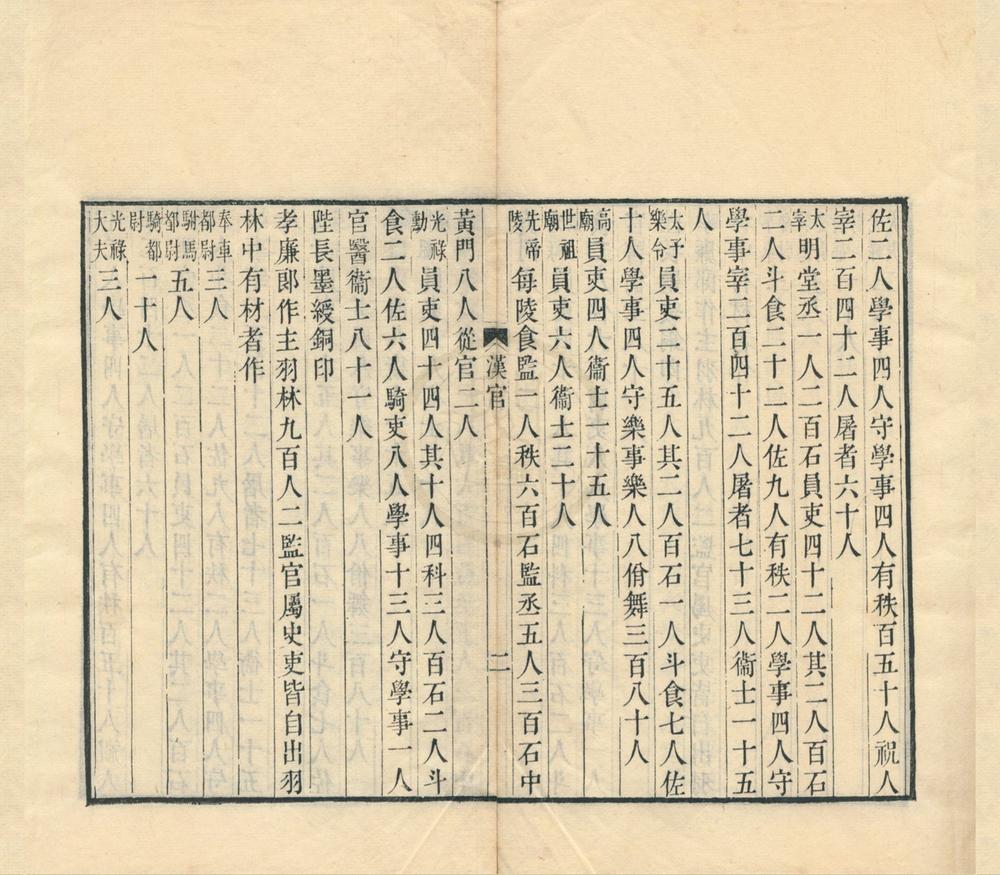 佐二人學事四人守學事四人有秩百五十人祝人
宰二百四十二人屠者六十人
太宰明堂丞一人二百石員吏四十二人其二人百石
二人斗食二十二人佐九人有秩二人學事四人守
學事宰二百四十二人屠者七十三人衞士一十五
人
太予樂令員吏二十五人其二人百石一人斗食七人佐
十人學事四人守樂事樂人八佾舞三百八十人
高廟員吏四人衞士一十五人
世祖廟員吏六人衞士二十人
先帝陵每陵食監一人秩六百石監丞五人三百石中
漢官
二
黃門八人從官二人
光祿勳員吏四十四人其十人四科三人百石二人斗
食二人佐六人騎吏八人學事十三人守學事一人
官醫衞士八十一人
陛長墨綬銅印
孝廉郎作主羽林九百人二監官屬史吏皆自出羽
林中有材者作
奉車都尉三人
駙馬都尉五人
騎都尉一十人
光祿大夫三人